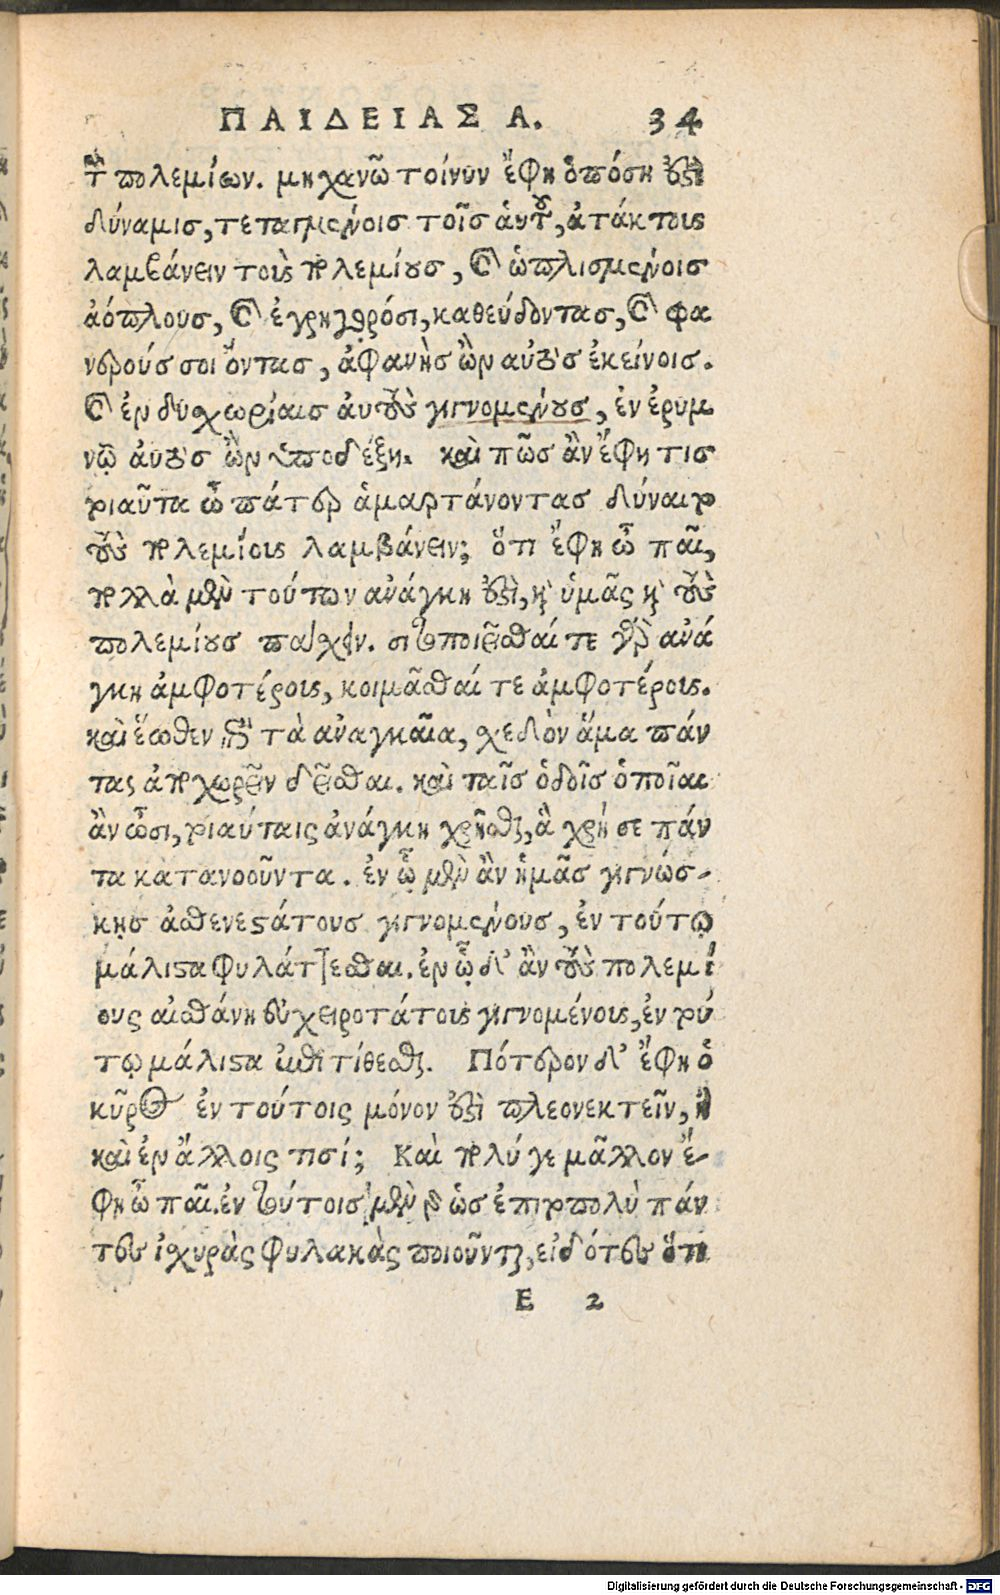 ΠΑΙΔΕΙΑΣ Α. 34
τῶν πολεμίων. μηχανῶ τοίνυν ἔφη ὁπόση ἐστὶ
δύναμις, τεταγμένοις τοῖς αὑτοῦ, ἀτάκτους
λαμβάνειν τοὺς πολεμίους, καὶ ὡπλισμένοις
ἀόπλους, καὶ ἐγρηγορόσι, καθεύδοντας, καὶ φα
νερούς σοι ὄντας, ἀφανὴς ὢν αὐτὸς ἐκείνοις.
καὶ ἐν δυσχωρίαις αὐτοὺς γιγνομένους, ἐν ἐρυμ
νῷ αὐτὸς ὢν ὑποδέξῃ. καὶ πῶς ἂν ἔφη τις
τοιαῦτα ὦ πάτερ ἁμαρτάνοντας δύναιτο
τοὺς πολεμίους λαμβάνειν; ὅτι ἔφη ὦ παῖ,
πολλὰ μὲν τούτων ἀνάγκη ἐστὶ, καὶ ὑμᾶς καὶ τοὺς
πολεμίους πασχεῖν. σιτοποιεῖσθαί τε γὰρ ἀνά
γκη ἀμφοτέροις, κοιμᾶσθαί τε ἀμφοτέροις.
καὶ ἕωθεν ἐπὶ τὰ ἀναγκαῖα, σχεδὸν ἅμα πάν
τας ἀποχωρεῖν δεῖσθαι. καὶ ταῖς ὁδοῖς ὁποῖαι
ἂν ὦσι, τοιαύταις ἀνάγκη χρῆσθαι, ἃ χρή σε πάν
τα κατανοοῦντα. ἐν ᾧ μὲν ἂν ἡμᾶς γιγνώσ-
κῃς ἀσθενεστάτους γιγνομένους, ἐν τούτῳ
μάλιστα φυλάττεσθαι. ἐν ᾧ δ' ἂν τοὺς πολεμί
ους αἰσθάνῃ εὐχειροτάτους γιγνομένους, ἐν τού
τῳ μάλιστα ἐπιτίθεσθαι. Πότερον δ' ἔφη ὁ
κῦρος ἐν τούτοις μόνον ἐστὶ πλεονεκτεῖν, ἢ
καὶ ἐν ἄλλοις τισί; Καὶ πολύ γε μᾶλλον ἔ-
φη ὦ παῖ. ἐν τούτοις μὲν γὰρ ὡς ἐπιτοπολὺ πάν
τες ἰσχυρὰς φυλακὰς ποιοῦνται, εἰδότες ὅτι
E 2
Digitalisierung gefördert durch die Deutsche Forschungsgemeinschaft - DFG